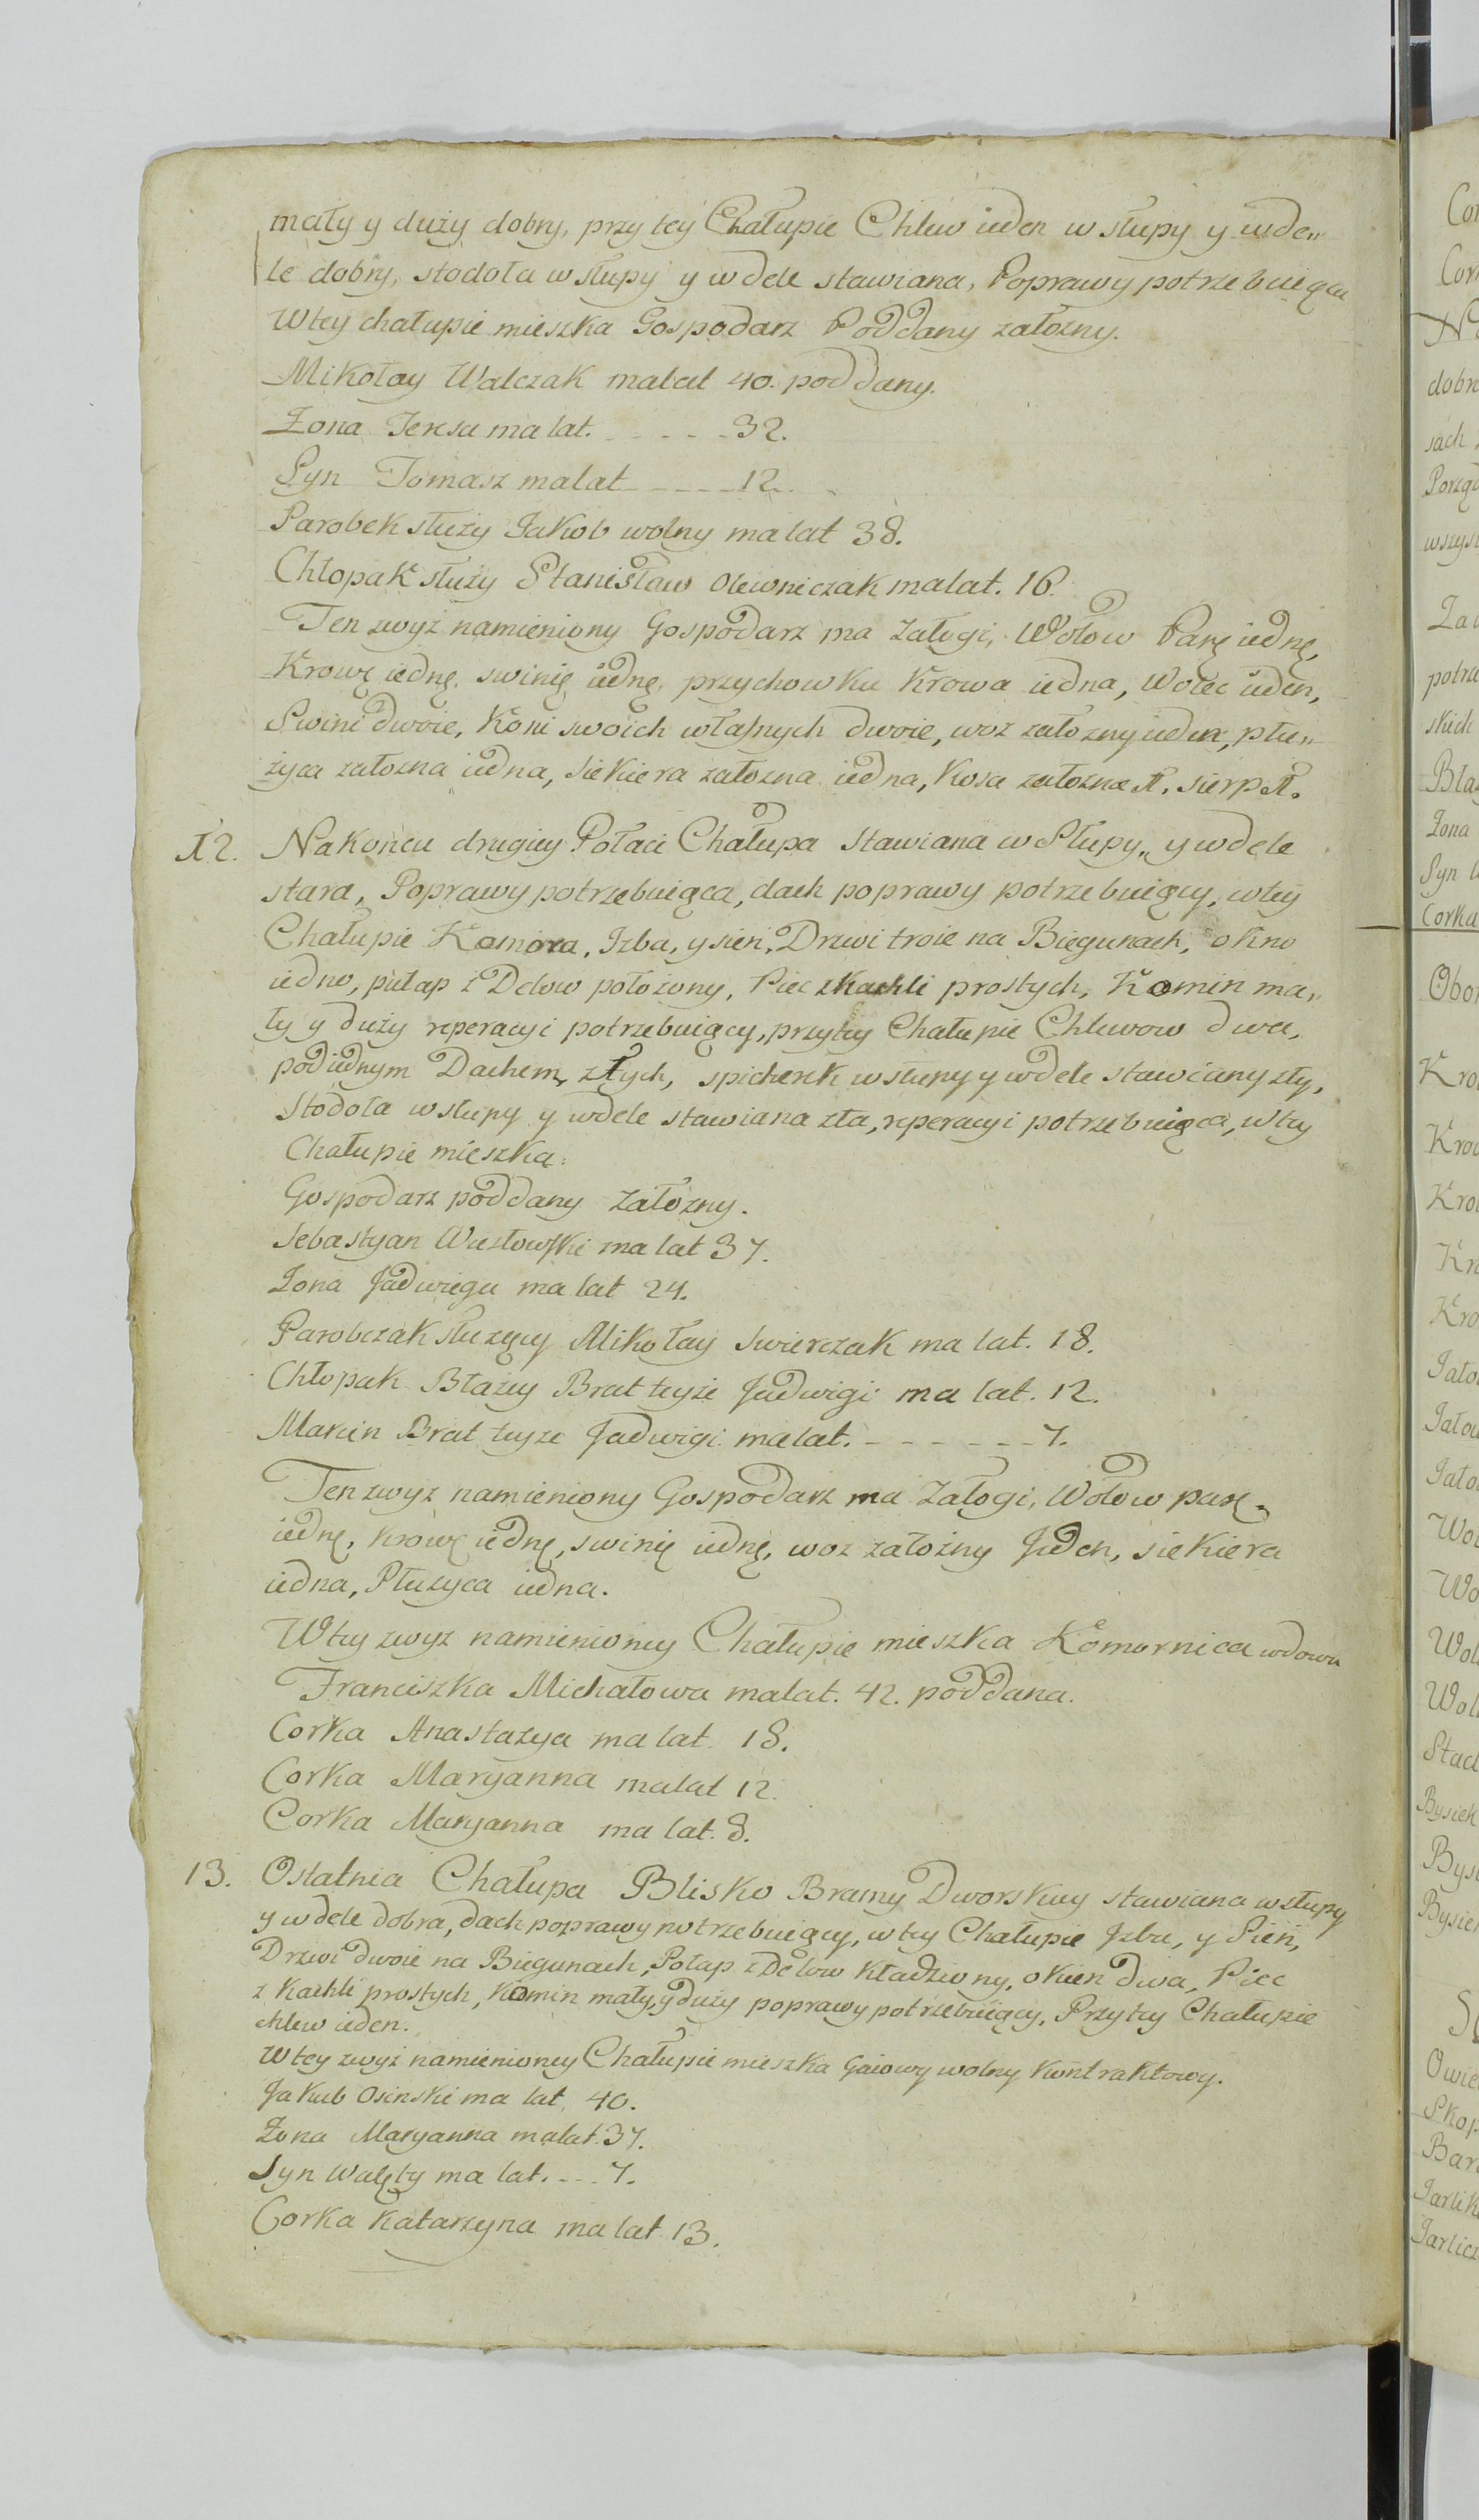 mały y duży dobry, przy tey Chałupie Chlew ieden w słupy y wde„
le dobry, stodoła w słupy y w dele stawiana, Poprawy potrzebuiąca
W tey chałupie mieszka Gospodarz Poddany załozny.
Mikołay Walczak ma lat 40. poddany.
Zona Teresa ma lat. - - - - - 32.
Syn Tomasz ma lat - - - - 12.
Parobek służy Jakob wolny ma lat 38.
Chłopak służy Stanisław Olewniczak ma lat. 16.
Ten zwyż namieniony Gospodarz ma Załogi, Wołow Parę iednę,
Krowę iednę, swinię iednę, przychowku Krowa iedna, Wolec ieden,
Swini dwoie, Koni swoich własnych dwoie, woz załozny ieden, płu„
życa załozna iedna, siekiera załozna iedna, Kosa załozna 1. sierp 1.
12. Na koncu drugiey Połaci Chałupa stawiana w Słupy, y w dele
stara, Poprawy potrzebuiąca, dach poprawy potrzebuiący, w tey
Chałupie Komora, Izba, y sień, Drzwi troie na Biegunach, okno
iedno, pułap z Delow położony, Piec z Kachli prostych, Komin ma„
ły y duży reperacyi potrzebuiący, przy tey Chałupie Chlewow dwa,
pod iednym Dachem, złych, spicherek w słupy y w dele stawiany zły,
Stodoła w słupy y w dele stawiana zła, reperacyi potrzebuiąca, W tey
Chałupie mieszka:
Gospodarz poddany załozny.
Sebastyan Wiesłowski ma lat 37.
Zona Jadwiega ma lat 24.
Parobczak służący Mikołay Swierczak ma lat. 18.
Chłopak Błażey Brat teyże Jadwigi ma lat. 12.
Marcin Brat teyze Jadwigi ma lat. - - - - - - 7.
Ten zwyz namieniony Gospodarz ma Załogi, Wołow parę
iednę, krowę iednę, swinię iednę, woz założny Jeden, siekiera
iedna, Płużyca iedna.
W tey zwyz namienioney Chałupie mieszka Komornica wdowa
Franciszka Michałowa ma lat. 42. poddana.
Corka Anastazya ma lat 18.
Corka Maryanna ma lat 12.
Corka Maryanna ma lat. 8.
13. Ostatnia Chałupa Blisko Bramy Dworskiey stawiana w słupy
y w dele dobra, dach poprawy potrzebuiący, w tey Chałupie Izba, y Sień,
Drzwi dwoie na Biegunach, Połap z Delow Kładziony, okien dwa, Piec
z Kachli prostych, Komin mały, y duży poprawy potrzebuiący, Przy tey Chałupie
chlew ieden.
W tey zwyż namienioney Chałupie mieszka Gaiowy wolny Kontraktowy.
Jakub Osinski ma lat 40.
Zona Maryanna ma lat 37.
Syn Walęty ma lat. - - - 7.
Corka Katarzyna ma lat 13.